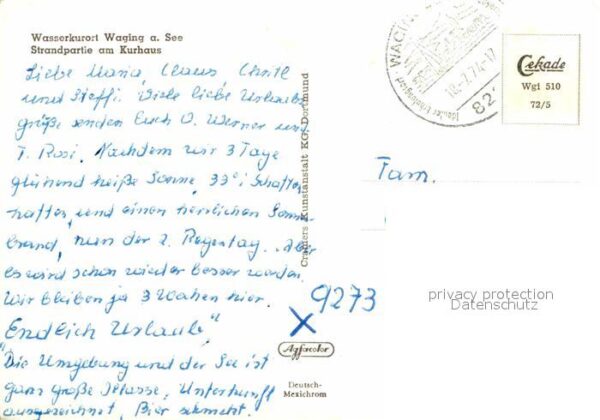 Wasserkurort Waging a. See
Strandpartie am Kurhaus
Liebe Maria, Claus, Christl
und Steffi. Viele liebe Urlaubs
grüße senden Euch O. Werner und
T. Rosi. Nachdem wir 3 Tage
glühend heiße Sonne, 33° i Schatten
hatten, und einen herrlichen Sonnen
brand, nun der 2. Regentag. Aber
es wird schon wieder besser werden.
Wir bleiben ja 3 Wochen hier.
Endlich Urlaub"
"Die Umgebung und der See ist
ganz große Klasse, Unterkunft
ausgezeichnet, Bier schmeckt.
Cramers Kunstanstalt KG, Dortmund
WAGING
18.-7.74-17
822
Cekade
Wgi 510
72/5
Fam.
X 9273
privacy protection
Datenschutz
Agfacolor
Deutsch-
Mexichrom